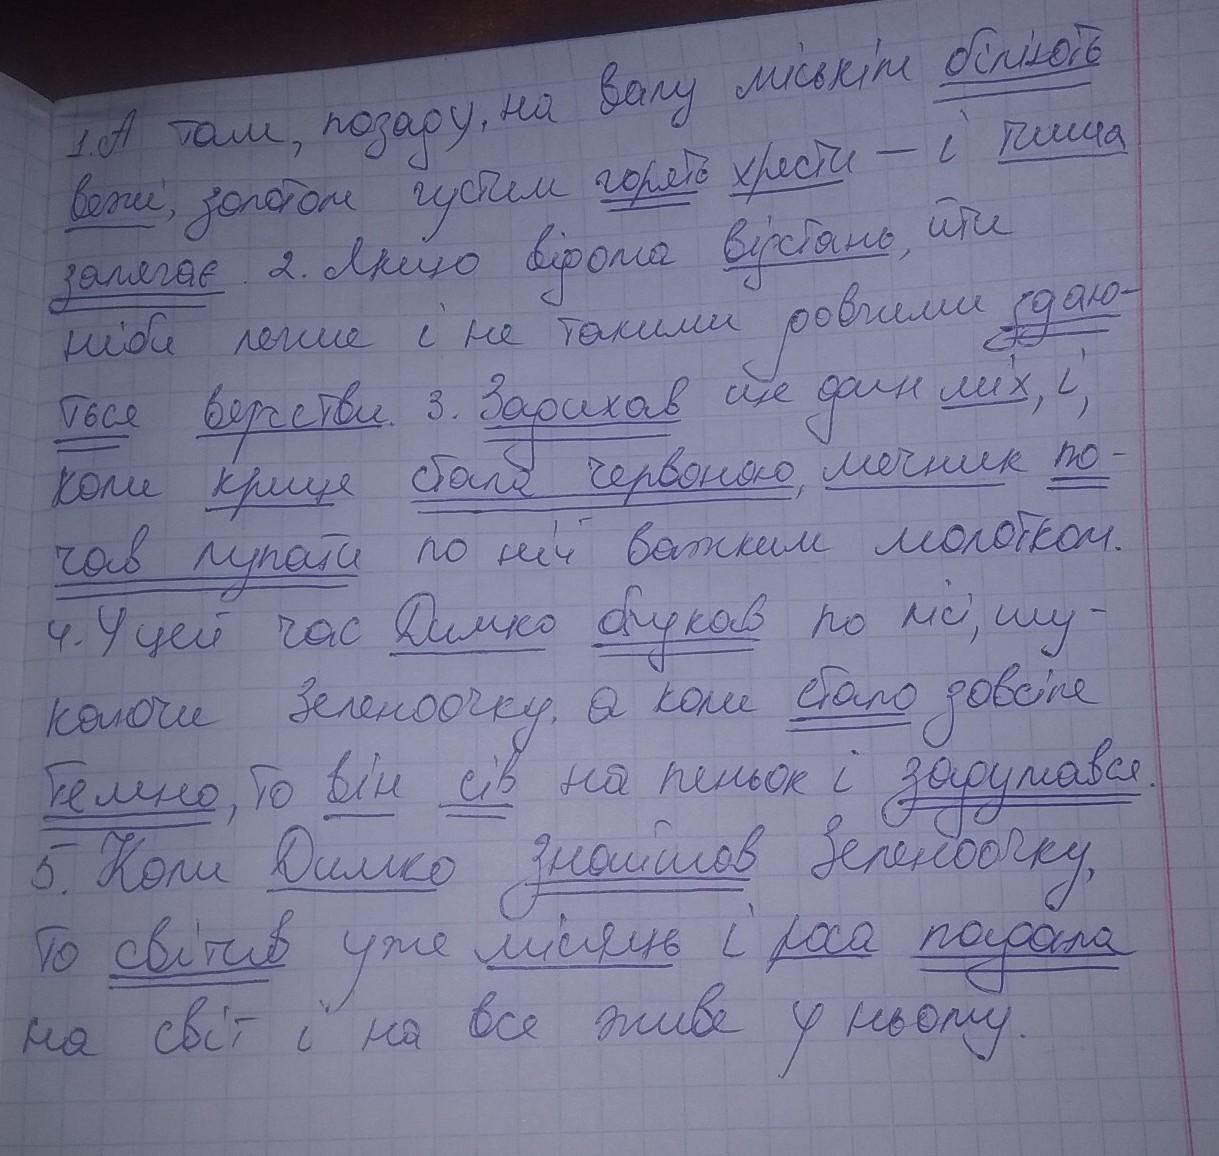 1. А там, позаду, на валу міськім біліють
вежі, золотом густим горять хрести – і тиша
залягає. 2. Якщо відома відстань, йти
ніби легше і не такими довгими здаю-
ться верстви. 3. Задихав ще дми міх, і,
коли криця стала червоною, мечник по-
чав лупати по ній важким молотком.
4. У цей час Димко блукав по лісі, шу-
каючи Зеленоочку, а коли стало зовсім
темно, то він сів на пеньок і задумався.
5. Коли Димко знайшов Зеленоочку,
то світив уже місяць і роса падала
на світ і на все живе у ньому.